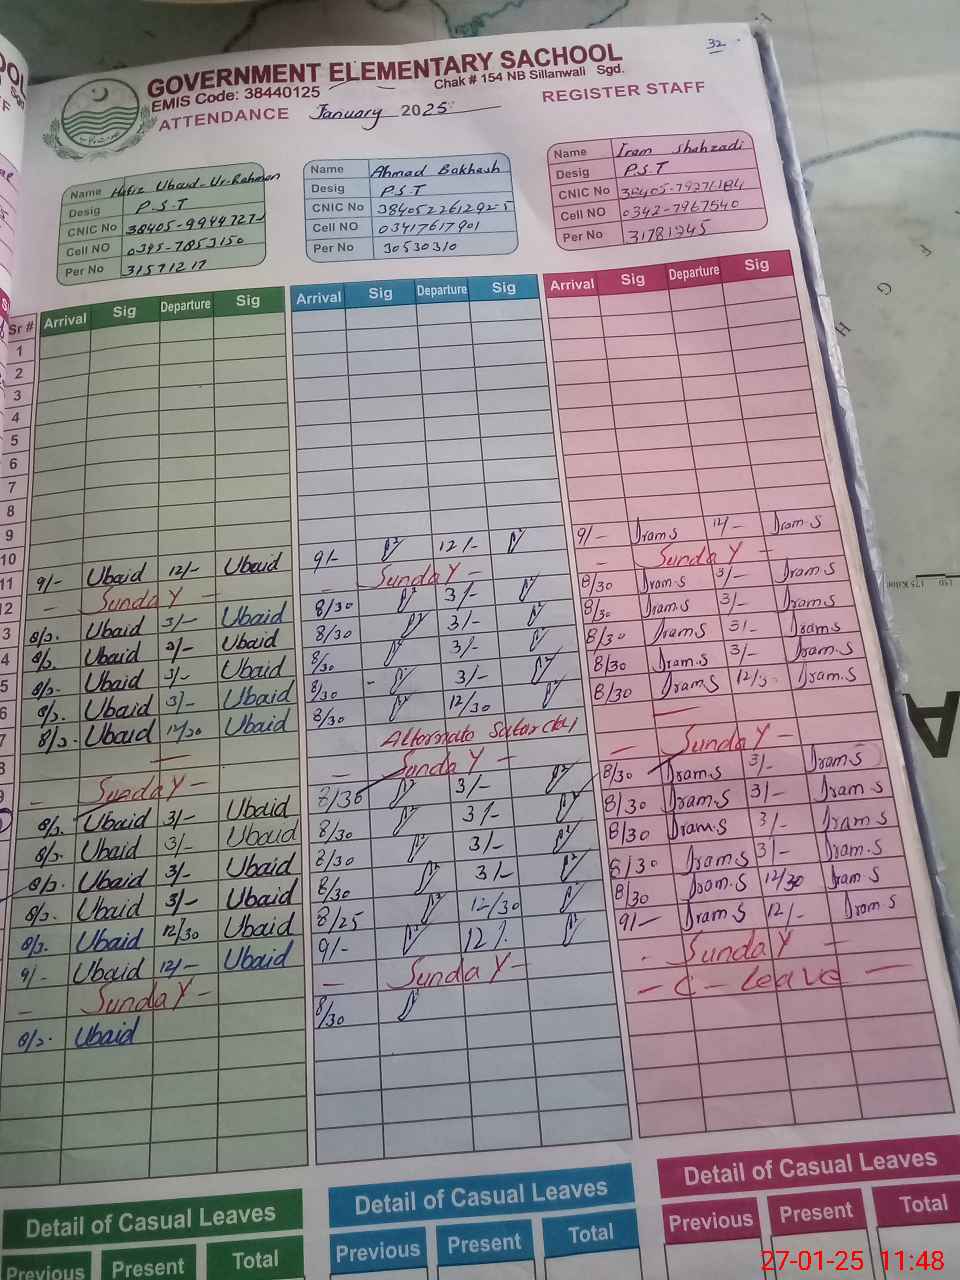 32
GOVERNMENT ELEMENTARY SACHOOL
EMIS Code: 38440125 Chak # 154 NB Sillanwali Sgd.
ATTENDANCE January 2025 REGISTER STAFF
Name Hafiz Ubaid-Ur-Rahman
Desig P.S.T
CNIC No
Cell NO 0345-7853150
Per No 31571217
Name Ahmad Bakhash
Desig P.S.T
CNIC No
Cell NO 03417617901
Per No 30530310
Name Iram Shahzadi
Desig P.S.T
CNIC No
Cell NO 0342-7967540
Per No 31781245
Sr # Arrival Sig Departure Sig Arrival Sig Departure Sig Arrival Sig Departure Sig
1
2
3
4
5
6
7
8
9
10
11
9/- Ubaid 12/- Ubaid
Sunday
8/3. Ubaid 3/- Ubaid
8/3. Ubaid 3/- Ubaid
8/3. Ubaid 3/- Ubaid
8/3. Ubaid 3/- Ubaid
8/3. Ubaid 12/30 Ubaid
Sunday
8/3. Ubaid 3/- Ubaid
8/3. Ubaid 3/- Ubaid
8/3. Ubaid 3/- Ubaid
8/3. Ubaid 3/- Ubaid
8/3. Ubaid 12/30 Ubaid
9/- Ubaid 12/- Ubaid
Sunday
8/3. Ubaid
9/- 12/-
Sunday
8/30 3/-
8/30 3/-
8/30 3/-
8/30 3/-
8/30 12/30
Alternate Saturday
Sunday
8/30 3/-
8/30 3/-
8/30 3/-
8/30 3/-
8/25 12/30
9/- 12/-
Sunday
8/30
9/- Iram S 12/- Iram.S
Sunday
8/30 Iram.S 3/- Iram.S
8/30 Iram.S 3/- Iram.S
8/30 Iram.S 3/- Iram.S
8/30 Iram.S 3/- Iram.S
8/30 Iram.S 12/30 Iram.S
Sunday
8/30 Iram.S 3/- Iram.S
8/30 Iram.S 3/- Iram.S
8/30 Iram.S 3/- Iram.S
8/30 Iram.S 3/- Iram.S
8/30 Iram.S 12/30 Iram.S
9/- Iram.S 12/- Iram.S
Sunday
C-Leave
Detail of Casual Leaves Detail of Casual Leaves Detail of Casual Leaves
Previous Present Total Previous Present Total Previous Present Total
27-01-25 11:48